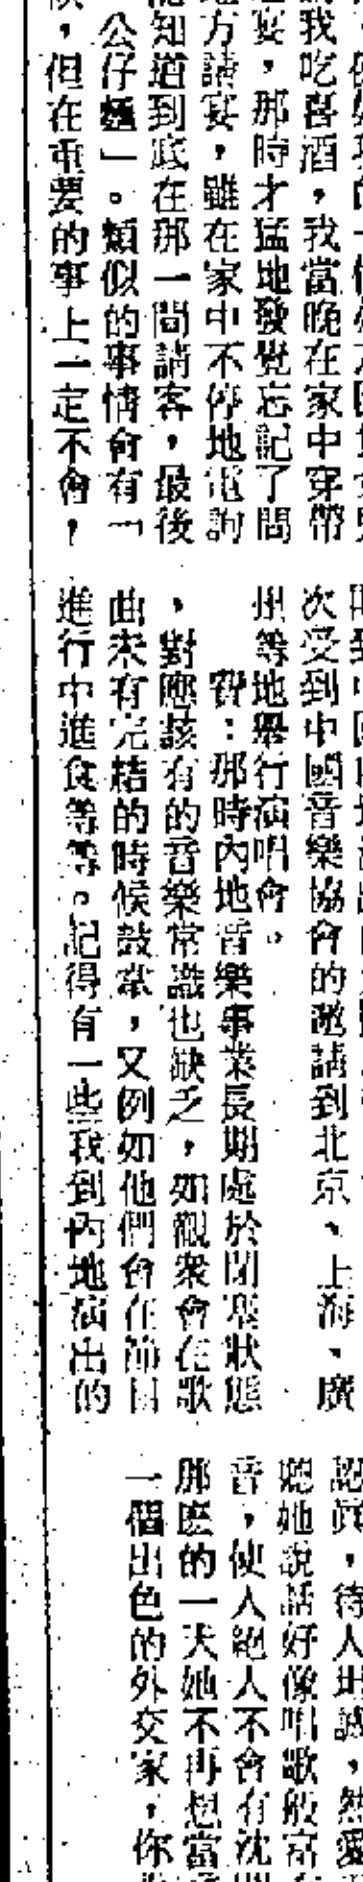 我吃喜酒,我當晚在家中穿帶
宴,那時才猛地發覺忘記了問
地方請宴,雖在家中不停地電詢
知道到底在那一間請客,最後
公仔麵」。類似的事情會有一
,但在重要的事上一定不會!
次受到中國音樂協會的邀請到北京、上海、廣
州等地舉行演唱會。
費:那時內地音樂事業長期處於閉塞狀態
,對應該有的音樂常識也缺乏,如觀衆會在歌
曲未有完結的時候鼓掌,又例如他們會在節目
進行中進食等等。記得有一些我到內地演出的
認眞,待人坦誠,熱愛
聽她說話好像唱歌般富有
音,使人絕人不會有沈悶
那麽的一天她不再想當
一個出色的外交家,你